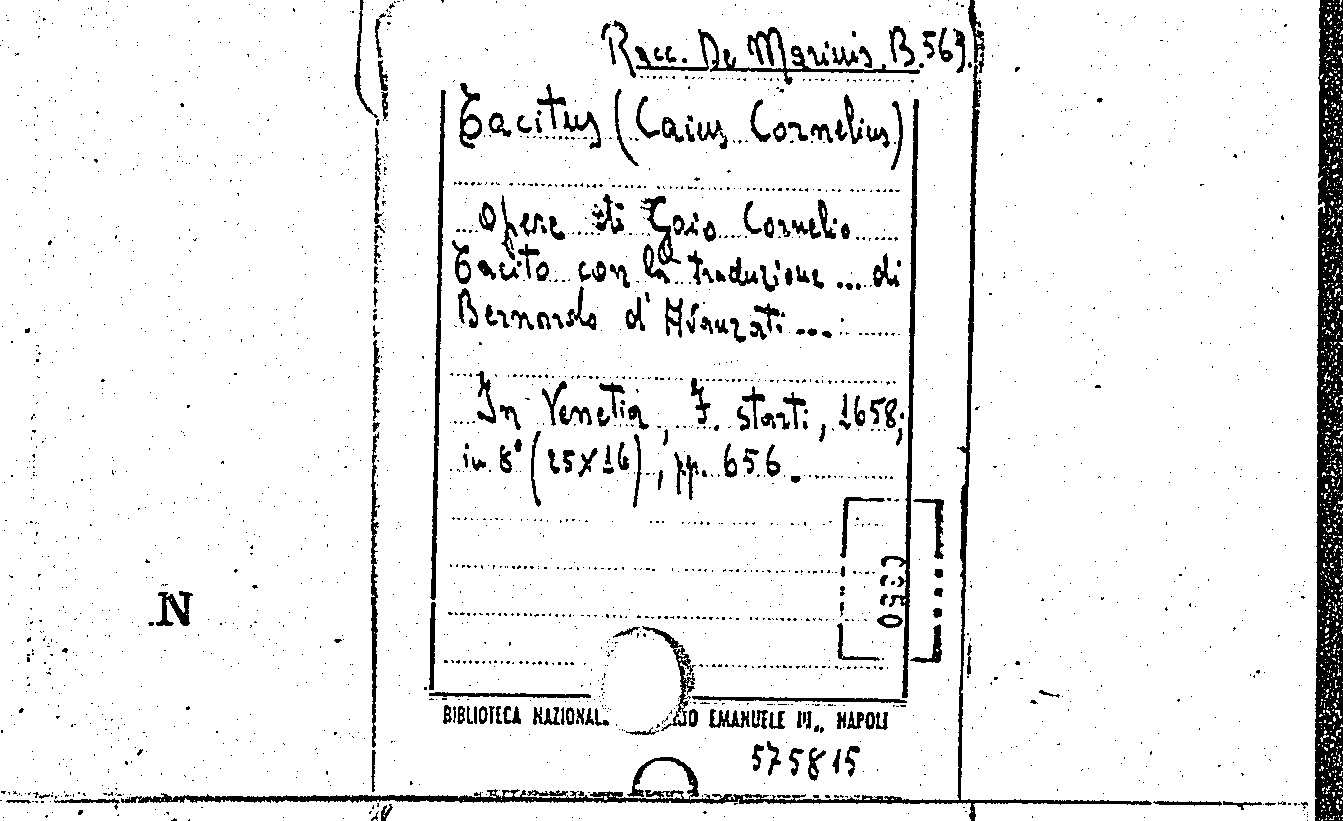 Racc. De Marinis. B. 563.
Tacitus (Caius Cornelius)
Opere di Gaio Cornelio
Tacito con la traduzione ... di
Bernardo d'Avanzati ....
In Venetia, F. Storti, 1658;
in 8° (25X16), pp. 656.
0350
N
BIBLIOTECA NAZIONAL. EMANUELE III., NAPOLI
575815